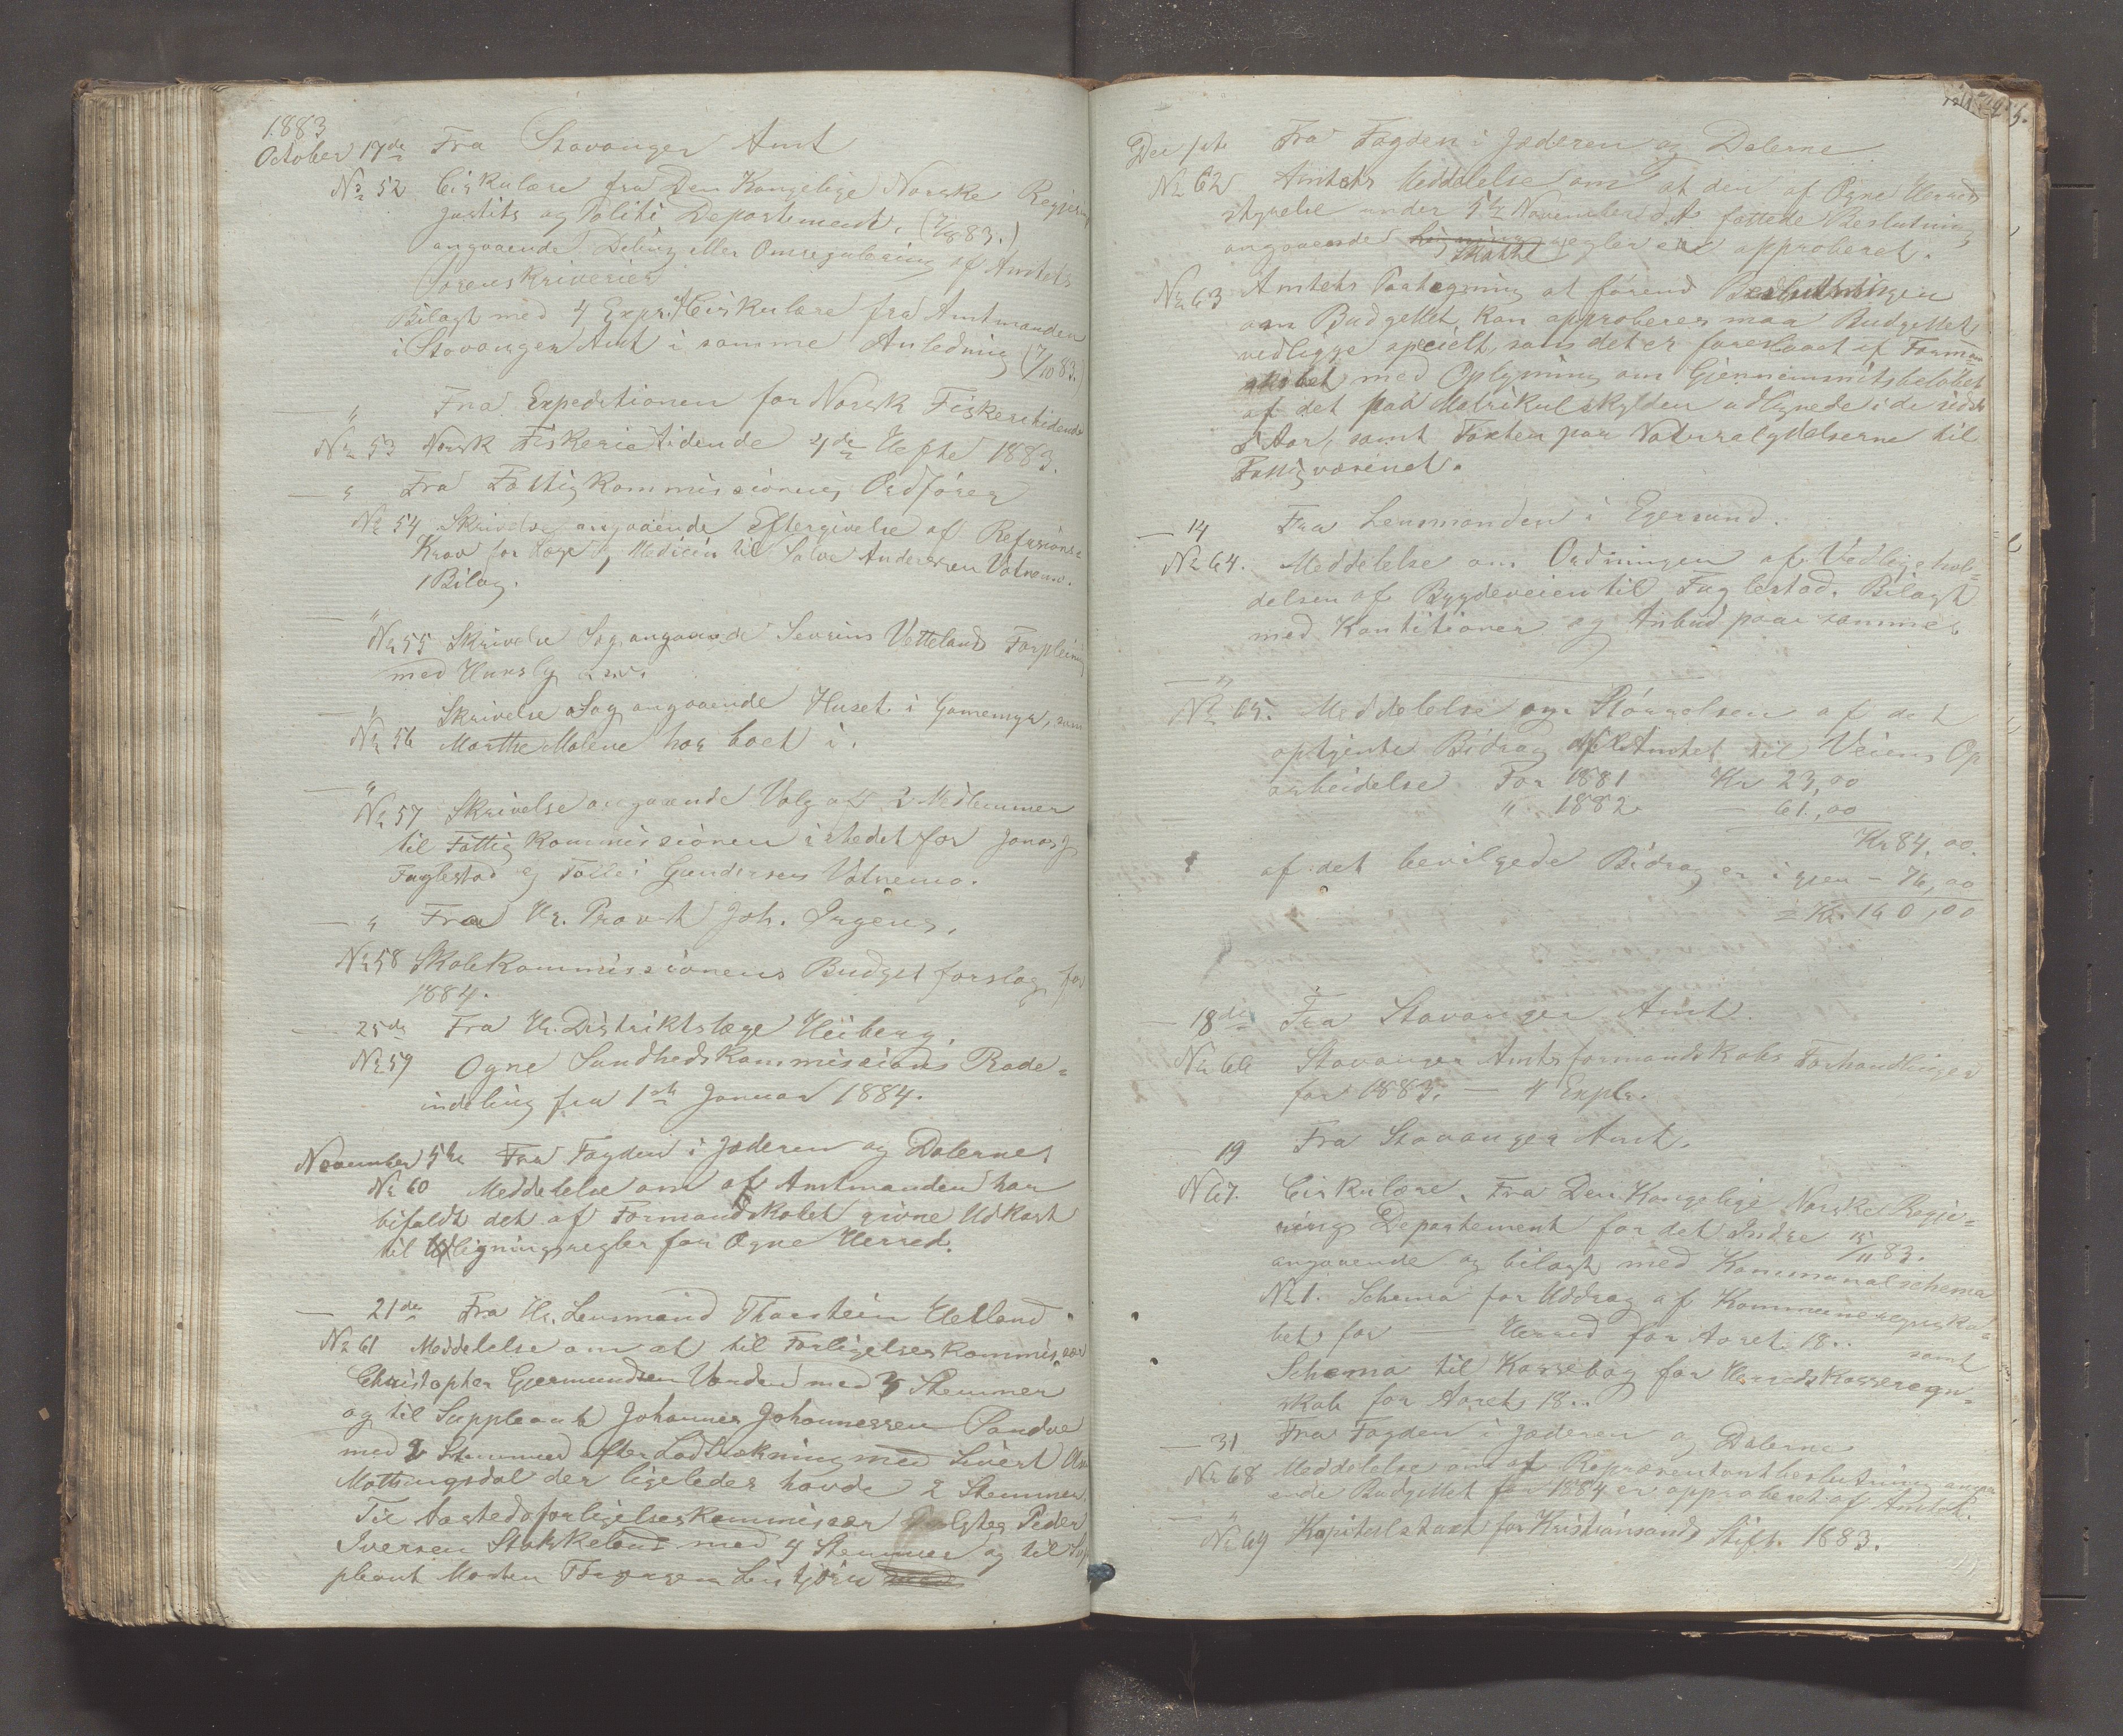 1883
October 17de Fra Stavanger Amt
No 52 Cirkulære fra Den Kongelige Norske Regjerings
Justits og Politi Departement. (7/8 83.)
angaaende Deling eller Omregulering af Amtets
Sorenskriverier
Bilagt med 4 Expr. Cirkulære fra Amtmanden
i Stavanger Amt i samme Anledning (7/10 83.)
" Fra Expeditionen for Norsk Fiskeritidende
No 53 Norsk Fiskerietidende 4de Hefte 1883.
— " Fra Fattigkommissionens Ordförer
No 54 Skrivelse angaaende Eftergivelse af Refusions=
Krav for Læge og Medicin til Salve Andersen Vatnemo.
1 Bilag.
— "
No 55 Skrivelse Sag angaaende Sevrins Vetteland Forpleining
med Huusly
— " Skrivelse Sag angaaende Huset i Gamemyr, som
No 56 Marthe Malene har boet i.
— "
No 57 Skrivelse angaaende Valg af 2 Medlemmer
til Fattigkommissionen istedet for Jonas J
Fuglestad og Tollei Gundersen Vatnemo.
— " Fra Hr. Provst Joh. Irgens.
No 58 Skolekommissionens Budget forslag for
1884.
— 25de Fra Hr. Distriktslæge Heiberg.
No 59 Ogne Sundhedskommissions Rode=
indeling fra 1ste Januar 1884.
November 5te Fra Fogden i Jæderen og Dalerne
No 60 Meddelelse om at Amtmanden har
bifaldt det af Formandskabet givne Udkast
til Ligningsregler for Ogne Herred.
— 21de Fra Hr. Lensmand Thorstein Hetland
No 61 Meddelelse om at til Forligelseskommissær
Christopher Gjermundsen Varden med 3 Stemmer
og til Suppleant Johannes Johannessen Sandve
med 2 Stemmer efter Lodtrækning med Sivert
Mattingsdal der ligeledes havde 2 Stemmer.
Til Aastedsforligelseskommissær valgtes Peder
Iversen Stokkeland med 4 Stemmer og til Sup
pleant Morten
Fra Fogden i Jæderen og Dalerne
No 62 Amtets Meddelelse om at den af Ogne Herreds
styrelse under 5te November d.A fattede Beslutning
angaaende Lignings regler er approberet.
Skatte
No 63 Amtets Paategning at förend Beslutningen
om Budgettet kan approberes maa Budgettet
vedligge specielt, som det er foreslaaet af Formand
skabet med Oplysning om Gjennemsnitsbelöbet
af det paa Matrikulskylden udlignede i de sidste
5 Aar, samt Taxten paa Naturalydelserne til
Fattigvæsenet.
— 14 Fra Lensmanden i Egersund.
No 64. Meddelelse om Ordningen af Vedligehol=
delsen af Bygdeveien til Fuglestad. Bilagt
med Kontitioner og Anbud paa samme.
— "
No 65. Meddelelse om Störrelsen af det
optjente Bidrag af Amtet til Veiens Op
arbeidelse For 1881 Kr 23,00
" 1882 — 61,00
Kr 84,00.
af det bevilgede Bidrag er igjen — 76,00
= Kr. 160,00
— 18de Fra Stavanger Amt.
No 66 Stavanger Amtsformandskabs Forhandlinger
for 1883. — 4 Explr.
— 19 Fra Stavanger Amt.
No 67. Cirkulære. Fra Den Kongelige Norske Regje=
rings Departement for det Indre 15/11 83.
angaaende og bilagt med Kommunalschema
No 1. Schema for Uddrag af Kommuneregnska=
bet for — Herred for Aaret 18.. samt
Schema til Kassebog for Herredskasseregn=
skab for Aaret 18..
— 31 Fra Fogden i Jæderen og Dalerne
No 68 Meddelelse om at Repræsentantbeslutning angaa
ende Budgettet for 1884 er approberet af Amtet.
— "
No 69 Kapitelstaxt for Kristiansands Stift. 1883.